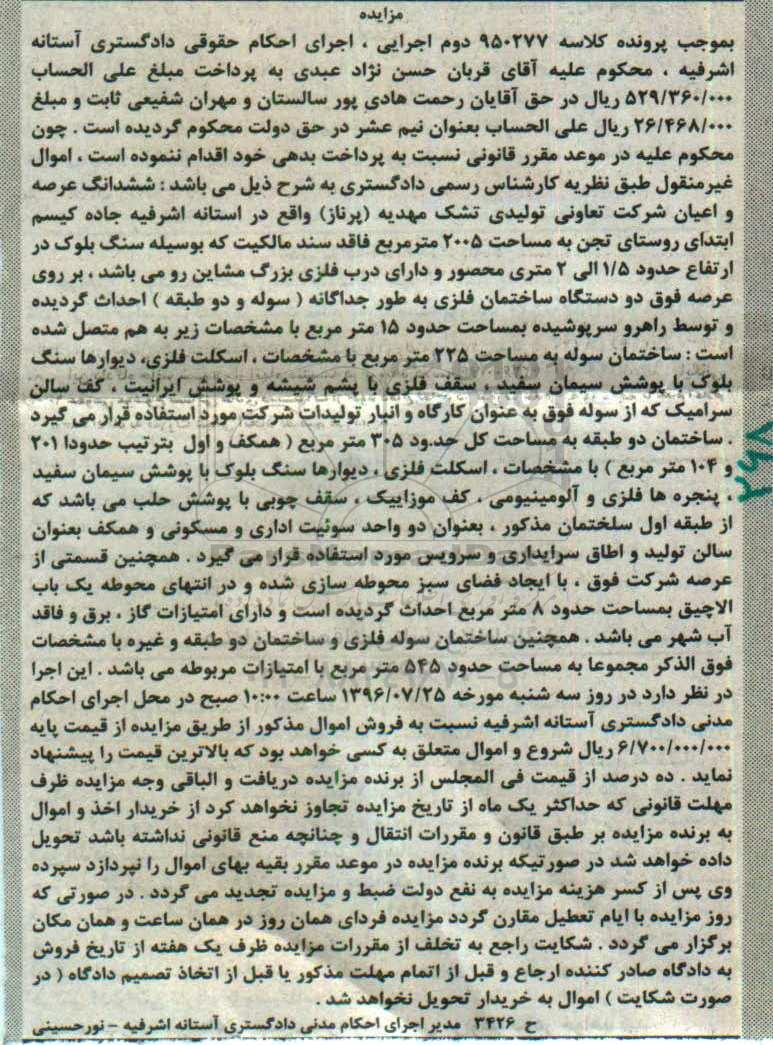 مزایده
بموجب پرونده کلاسه ۹۵۰۲۷۷ دوم اجرایی ، اجرای احکام حقوقی دادگستری آستانه
اشرفیه ، محکوم علیه آقای قربان حسن نژاد عبدی به پرداخت مبلغ علی الحساب
۵۲۹/۳۶۰/۰۰۰ ریال در حق آقایان رحمت هادی پور سالستان و مهران شفیعی ثابت و مبلغ
۲۶/۴۶۸/۰۰۰ ریال علی الحساب بعنوان نیم عشر در حق دولت محکوم گردیده است . چون
محکوم علیه در موعد مقرر قانونی نسبت به پرداخت بدهی خود اقدام ننموده است ، اموال
غیرمنقول طبق نظریه کارشناس رسمی دادگستری به شرح ذیل می باشد : ششدانگ عرصه
و اعیان شرکت تعاونی تولیدی تشک مهدیه (پرناز) واقع در استانه اشرفیه جاده کیسم
ابتدای روستای تجن به مساحت ۲۰۰۵ مترمربع فاقد سند مالکیت که بوسیله سنگ بلوک در
ارتفاع حدود ۱/۵ الی ۲ متری محصور و دارای درب فلزی بزرگ مشاین رو می باشد ، بر روی
عرصه فوق دو دستگاه ساختمان فلزی به طور جداگانه ( سوله و دو طبقه ) احداث گردیده
و توسط راهرو سرپوشیده بمساحت حدود ۱۵ متر مربع با مشخصات زیر به هم متصل شده
است : ساختمان سوله به مساحت ۲۲۵ متر مربع با مشخصات ، اسکلت فلزی، دیوارها سنگ
بلوک با پوشش سیمان سفید ، سقف فلزی با پشم شیشه و پوشش ایرانیت ، کف سالن
سرامیک که از سوله فوق به عنوان کارگاه و انبار تولیدات شرکت مورد استفاده قرار می گیرد
. ساختمان دو طبقه به مساحت کل حدود ۳۰۵ متر مربع ( همکف و اول بترتیب حدودا ۲۰۱
و ۱۰۴ متر مربع ) با مشخصات ، اسکلت فلزی ، دیوارها سنگ بلوک با پوشش سیمان سفید
، پنجره ها فلزی و آلومینیومی ، کف موزاییک ، سقف چوبی با پوشش حلب می باشد که
از طبقه اول سلختمان مذکور ، بعنوان دو واحد سوئیت اداری و مسکونی و همکف بعنوان
سالن تولید و اطاق سرایداری و سرویس مورد استفاده قرار می گیرد . همچنین قسمتی از
عرصه شرکت فوق ، با ایجاد فضای سبز محوطه سازی شده و در انتهای محوطه یک باب
الاچیق بمساحت حدود ۸ متر مربع احداث گردیده است و دارای امتیازات گاز ، برق و فاقد
آب شهر می باشد . همچنین ساختمان سوله فلزی و ساختمان دو طبقه و غیره با مشخصات
فوق الذکر مجموعا به مساحت حدود ۵۴۵ متر مربع با امتیازات مربوطه می باشد . این اجرا
در نظر دارد در روز سه شنبه مورخه ۱۳۹۶/۰۷/۲۵ ساعت ۱۰:۰۰ صبح در محل اجرای احکام
مدنی دادگستری آستانه اشرفیه نسبت به فروش اموال مذکور از طریق مزایده از قیمت پایه
۶/۷۰۰/۰۰۰/۰۰۰ ریال شروع و اموال متعلق به کسی خواهد بود که بالاترین قیمت را پیشنهاد
نماید . ده درصد از قیمت فی المجلس از برنده مزایده دریافت و الباقی وجه مزایده ظرف
مهلت قانونی که حداکثر یک ماه از تاریخ مزایده تجاوز نخواهد کرد از خریدار اخذ و اموال
به برنده مزایده بر طبق قانون و مقررات انتقال و چنانچه منع قانونی نداشته باشد تحویل
داده خواهد شد در صورتیکه برنده مزایده در موعد مقرر بقیه بهای اموال را نپردازد سپرده
وی پس از کسر هزینه مزایده به نفع دولت ضبط و مزایده تجدید می گردد . در صورتی که
روز مزایده با ایام تعطیل مقارن گردد مزایده فردای همان روز در همان ساعت و همان مکان
برگزار می گردد . شکایت راجع به تخلف از مقررات مزایده ظرف یک هفته از تاریخ فروش
به دادگاه صادر کننده ارجاع و قبل از اتمام مهلت مذکور یا قبل از اتخاذ تصمیم دادگاه ( در
صورت شکایت ) اموال به خریدار تحویل نخواهد شد .
ح ۳۴۲۶ مدیر اجرای احکام مدنی دادگستری آستانه اشرفیه - نورحسینی